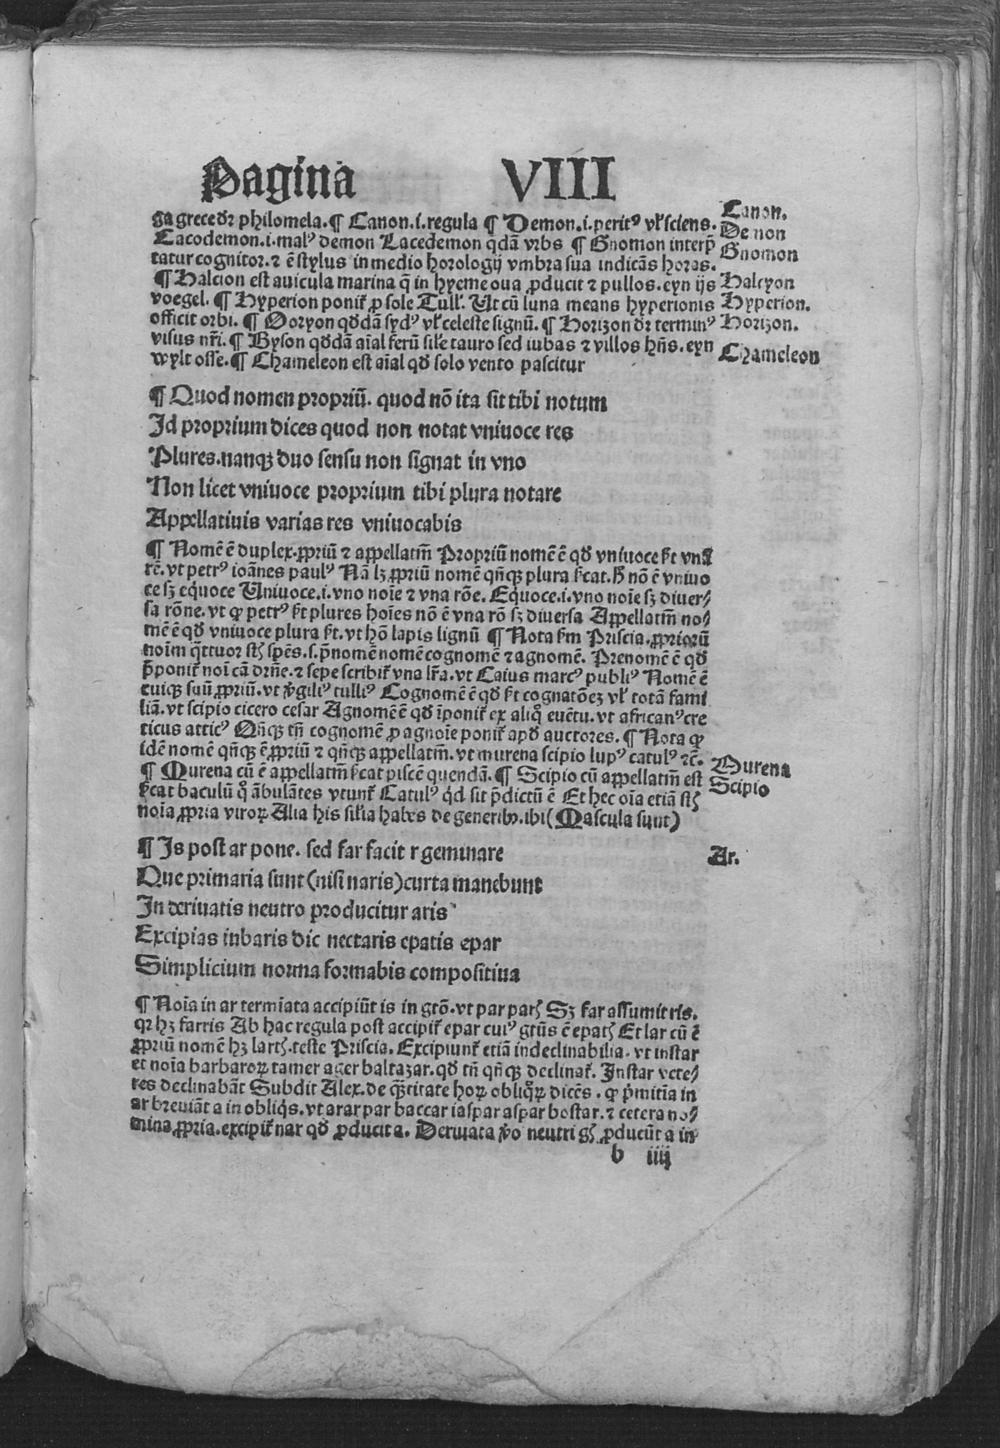 Pagina VIII
ga grece dr̄ philomela. ¶ Canon .i. regula ¶ Demon .i. peritꝰ vl̓ sciens. Canon.
Cacodemon .i. malꝰ demon Lacedemon qdā vrbs ¶ Gnomon interp̄ Demon
tatur cognitor. ⁊ ē stylus in medio horologij vmbra sua indicās horas. Gnomon
¶ Halcion est auicula marina q̄ in hyeme oua ꝓducit ⁊ pullos. eyn ijs Halcyon
voegel. ¶ Hyperion ponit̄ ꝓ sole Tull̓. Ut cū luna means hyperionis Hyperion.
officit orbi. ¶ Ooryon qddā sydꝰ vl̓ celeste signū. ¶ Horizon dr̄ terminꝰ Horizon.
visus nr̄i. ¶ Byson qdđā aīal ferū sil̓e tauro sed iubas ⁊ villos hn̄s. eyn
wylt osse. ¶ Chameleon est aīal qđ solo vento pascitur Chameleon
¶ Quod nomen propriū. quod nō ita sit tibi notum
Id proprium dices quod non notat vniuoce res
Plures. nanqꝫ duo sensu non signat in vno
Non licet vniuoce proprium tibi plura notare
Appellatiuis varias res vniuocabis
¶ Nomē ē duplex. ꝓpriū ⁊ appellatiū̄ Propriū nomē ē qđ vniuoce sc̄t vnā
rē. vt petrꝰ ioānes paulꝰ Nā lꝫ ꝓpriū nomē qn̄qꝫ plura sc̄at. h̄ nō ē vniuo
ce sꝫ equoce Uniuoce .i. vno noīe ⁊ vna rōe. Equoce .i. vno noīe sꝫ diuer⸗
sa rōne. vt ꝙ petrꝰ sc̄t plures hoīes nō ē vna rō sꝫ diuersa Appellatm̄ no⸗
mē ē qđ vniuoce plura sc̄t. vt hō lapis lignū ¶ Nota sm̄ Priscia. ꝓpriorū
noīm q̄ttuor st̄ sp̄es. s. p̄nomē nomē cognomē ⁊ agnomē. Prenomē ē qđ
p̄ponit̄ noī cā drn̄e. ⁊ sepe scribit̄ vna lr̄a. vt Caius marcꝰ publiꝰ Nomē ē
cuiqꝫ suū ꝓpriū. vt v̓giliꝰ tulliꝰ Cognomē ē qđ sc̄t cognatōeꝫ vl̓ totā fami
liā. vt scipio cicero cesar Agnomē ē qđ īponit̄ ex aliq̊ euētu. vt africanꝰ cre
ticus atticꝰ Qn̄qꝫ tn̄ cognomē ꝓ agnoīe ponit̄ apđ auctores. ¶ Nota ꝙ
idē nomē qn̄qꝫ ē ꝓpriū ⁊ qn̄qꝫ appellatm̄. vt murena scipio lupꝰ catulꝰ ⁊c̄.
¶ Murena cū ē appellatm̄ sc̄at piscē quendā. ¶ Scipio cū appellatm̄ est Murena
sc̄at baculū q̊ ābulātes vtunt̄ Catulꝰ qđ sit p̄dictū ē Et hec oīa etiā st̄ Scipio
noīa ꝓpria viroꝝ Alia his sil̓ia habes de generibꝰ. ibi (Mascula sunt)
¶ Is post ar pone. sed far facit r geminare Ar.
Que primaria sunt (nisi naris) curta manebunt
In deriuatis neutro producitur aris
Excipias iubaris dic nectaris epatis epar
Simplicium norma formabis compositiua
¶ Noīa in ar termīata accipiūt is in gtō. vt par parꝭ Sꝫ far assumit ris.
qꝛ hꝫ farris Ab hac regula post accipit̄ epar cuiꝰ gtūs ē epatꝭ Et lar cū ē
ꝓpriū nomē hꝫ lartꝭ. teste Priscia. Excipiunt̄ etiā indeclinabilia. vt instar
et noīa barbaroꝝ tamer ager baltazar. qđ tn̄ qn̄qꝫ declinat̄. Instar vete⸗
res declinabāt Subdit Alex. de q̄ntitate hoꝝ obliq̊ꝝ dicēs. ꝙ p̓mitīa in
ar breuiāt a in obliq̓s. vt arar par baccar iaspar aspar bostar. ⁊ cetera no⸗
mina ꝓpria. excipit̄ nar qđ ꝓducit a. Deriuata v̓o neutri gn̄ꝭ ꝓducūt a in
b iiij